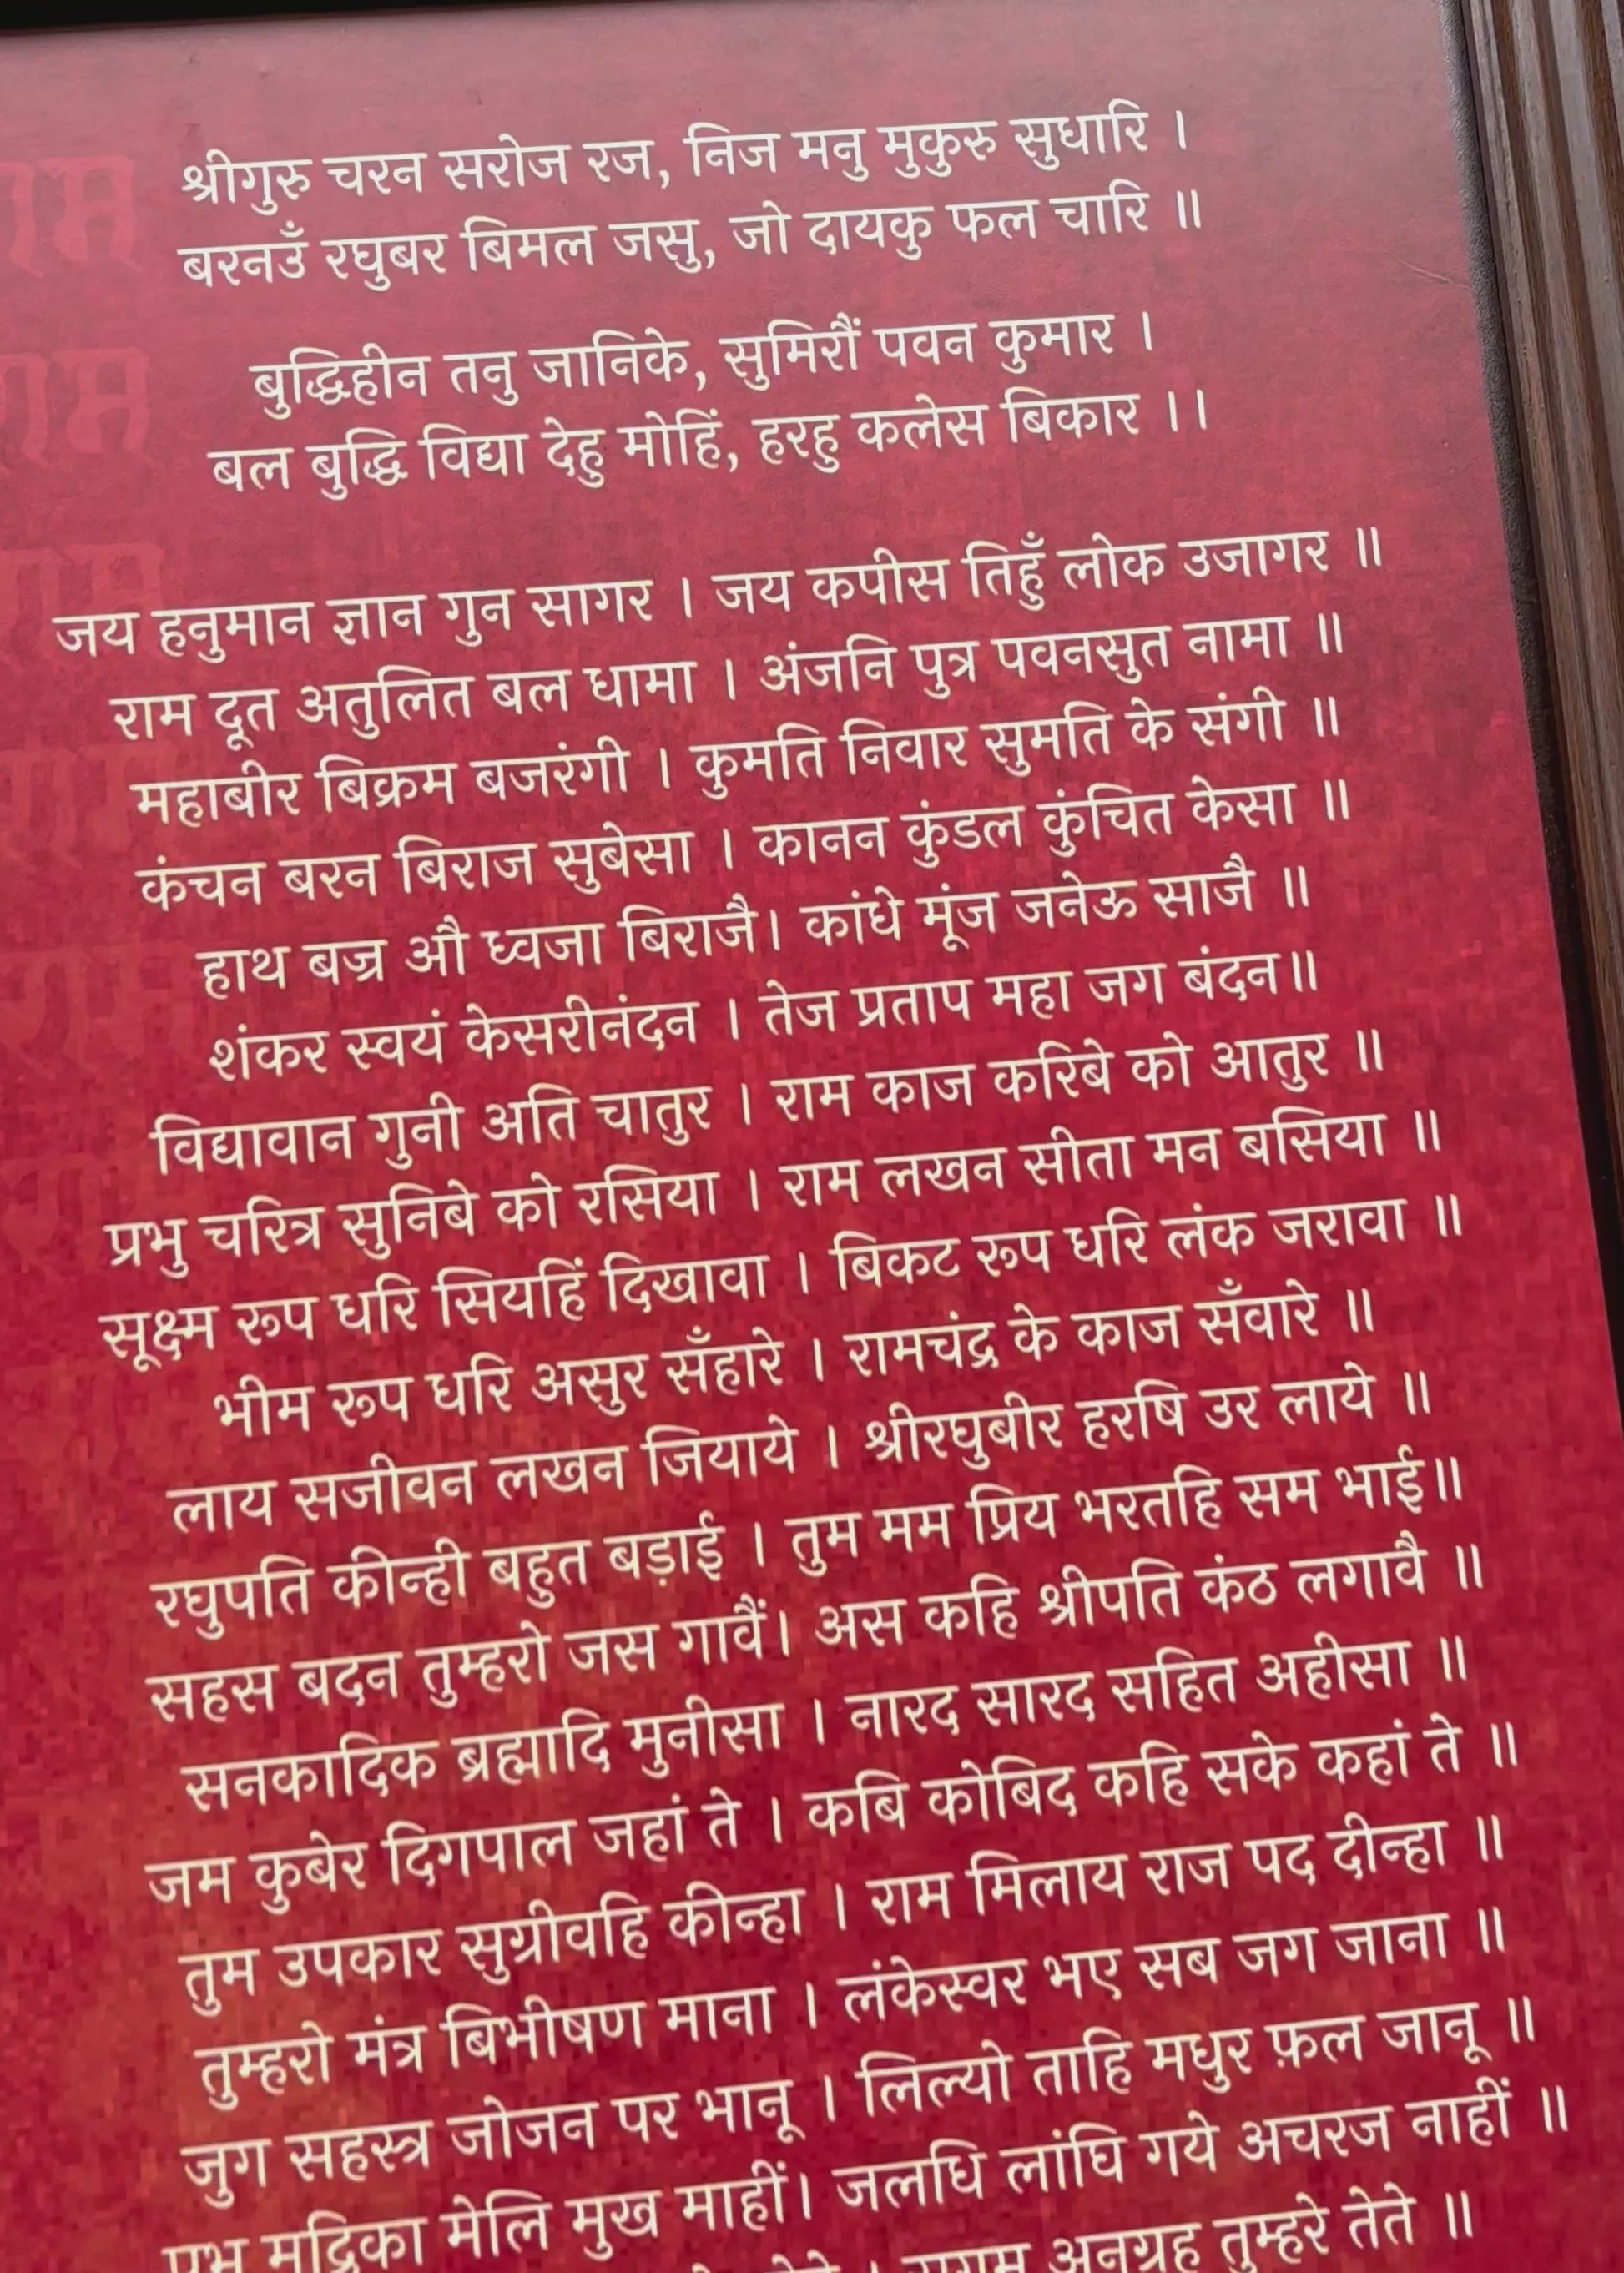 श्रीगुरु चरन सरोज रज, निज मनु मुकुरु सुधारि ।
बरनउँ रघुबर बिमल जसु, जो दायकु फल चारि ॥
बुद्धिहीन तनु जानिके, सुमिरौं पवन कुमार ।
बल बुद्धि विद्या देहु मोहिं, हरहु कलेस बिकार ।।
जय हनुमान ज्ञान गुन सागर । जय कपीस तिहुँ लोक उजागर ॥
राम दूत अतुलित बल धामा । अंजनि पुत्र पवनसुत नामा ॥
महाबीर बिक्रम बजरंगी । कुमति निवार सुमति के संगी ॥
कंचन बरन बिराज सुबेसा । कानन कुंडल कुंचित केसा ॥
हाथ बज्र औ ध्वजा बिराजै। कांधे मूंज जनेऊ साजै ॥
शंकर स्वयं केसरीनंदन । तेज प्रताप महा जग बंदन॥
विद्यावान गुनी अति चातुर । राम काज करिबे को आतुर ॥
प्रभु चरित्र सुनिबे को रसिया । राम लखन सीता मन बसिया ॥
सूक्ष्म रूप धरि सियहिं दिखावा । बिकट रूप धरि लंक जरावा ॥
भीम रूप धरि असुर सँहारे । रामचंद्र के काज सँवारे ॥
लाय सजीवन लखन जियाये । श्रीरघुबीर हरषि उर लाये ॥
रघुपति कीन्ही बहुत बड़ाई । तुम मम प्रिय भरतहि सम भाई॥
सहस बदन तुम्हरो जस गावैं। अस कहि श्रीपति कंठ लगावै ॥
सनकादिक ब्रह्मादि मुनीसा । नारद सारद सहित अहीसा ॥
जम कुबेर दिगपाल जहां ते । कबि कोबिद कहि सके कहां ते ॥
तुम उपकार सुग्रीवहि कीन्हा । राम मिलाय राज पद दीन्हा ॥
तुम्हरो मंत्र बिभीषण माना । लंकेस्वर भए सब जग जाना ॥
जुग सहस्त्र जोजन पर भानू । लिल्यो ताहि मधुर फ़ल जानू ॥
मुद्रिका मेलि मुख माहीं। जलधि लांघि गये अचरज नाहीं ॥
अनुग्रह तुम्हरे तेते ॥